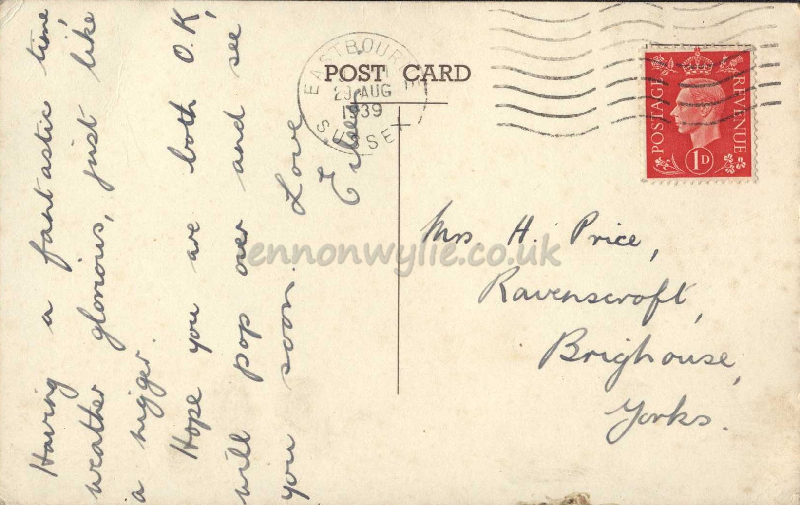 POST CARD
EASTBOURNE
29 AUG
1939
SUSSEX
POSTAGE
REVENUE
1D
Having a fantastic time
weather glorious, just like
a nigger.
Hope you are both O.K,
will pop over and see
you soon. Love
Mrs H. Price,
Ravenscroft,
Brighouse,
Yorks.
ennonwylie.co.uk